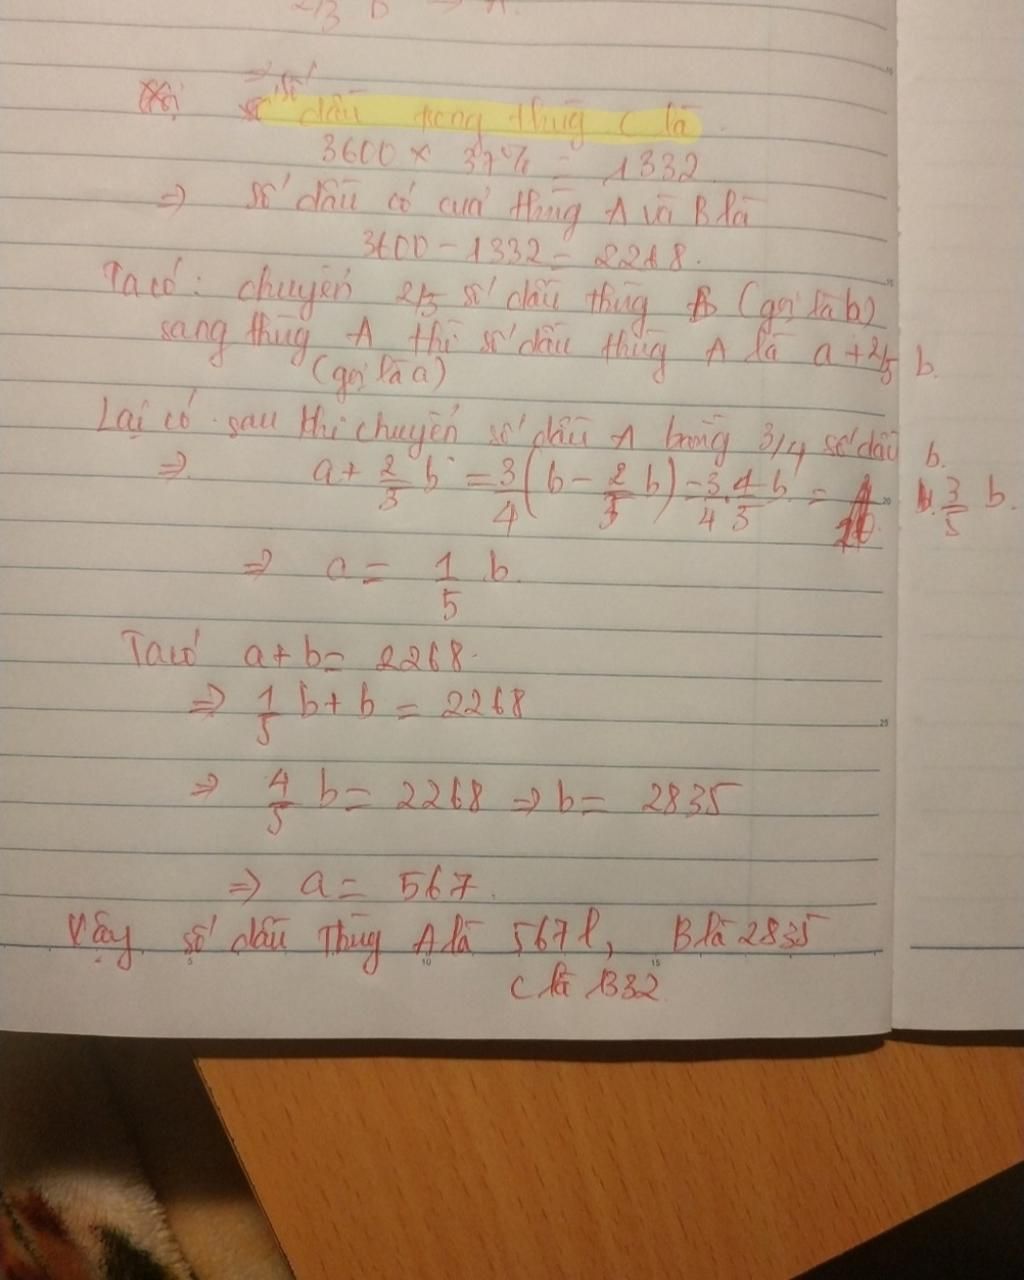 2/3 b → A.
⇒ số dầu trong thùng C là
3600 × 37% = 1332
⇒ số dầu có của thùng A và B là
3600 - 1332 = 2268.
Ta có: chuyển 2/5 số dầu thùng B (gọi là b)
sang thùng A thì số dầu thùng A là a + 2/5 b.
(gọi là a)
Lại có sau khi chuyển số dầu A bằng 3/4 số dầu b.
⇒ a + 2/3 b = 3/4 (b - 2/5 b) = 3/4 . 4/5 b = 3/5 b.
⇒ a = 1/5 b.
Ta có a + b = 2268.
⇒ 1/5 b + b = 2268
⇒ 4/5 b = 2268 ⇒ b = 2835
⇒ a = 567.
Vậy số dầu Thùng A là 567 l, B là 2835
C là 1332.